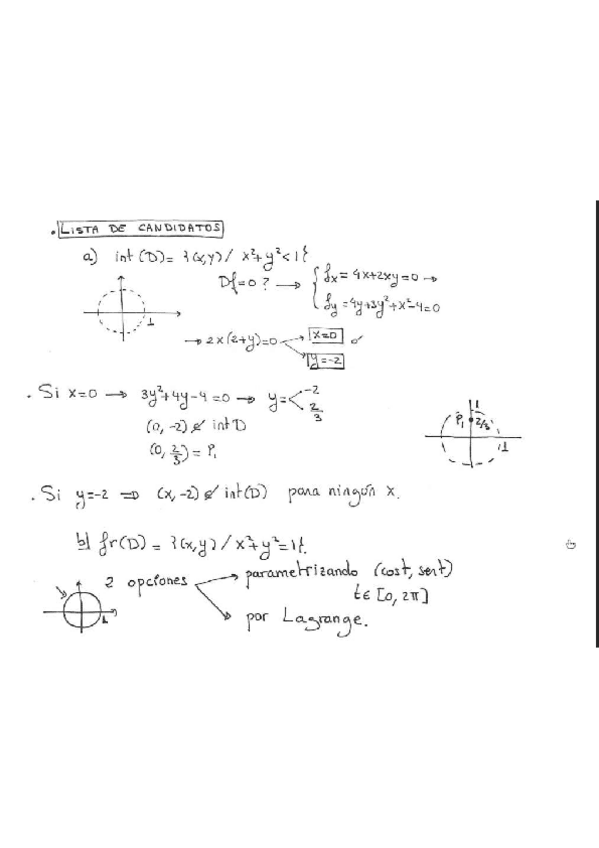 . LISTA DE CANDIDATOS
a) int (D) = {(x,y) / x²+y²<1}
Df=0 ? → { fx = 4x+2xy=0 →
fy = 4y+3y²+x²-4=0
1
→ 2x(2+y)=0 → x=0 ó
y=-2
. Si x=0 → 3y²+4y-4=0 → y= < -2
2/3
(0, -2) ∉ int D
(0, 2/3) = P₁
1
P₁ 2/3
1
. Si y=-2 ⇒ (x,-2) ∉ int(D) para ningún x.
b) fr(D) = {(x,y) / x²+y²=1}.
2 opciones → parametrizando (cost, sent)
t∈[0, 2π]
→ por Lagrange.
1